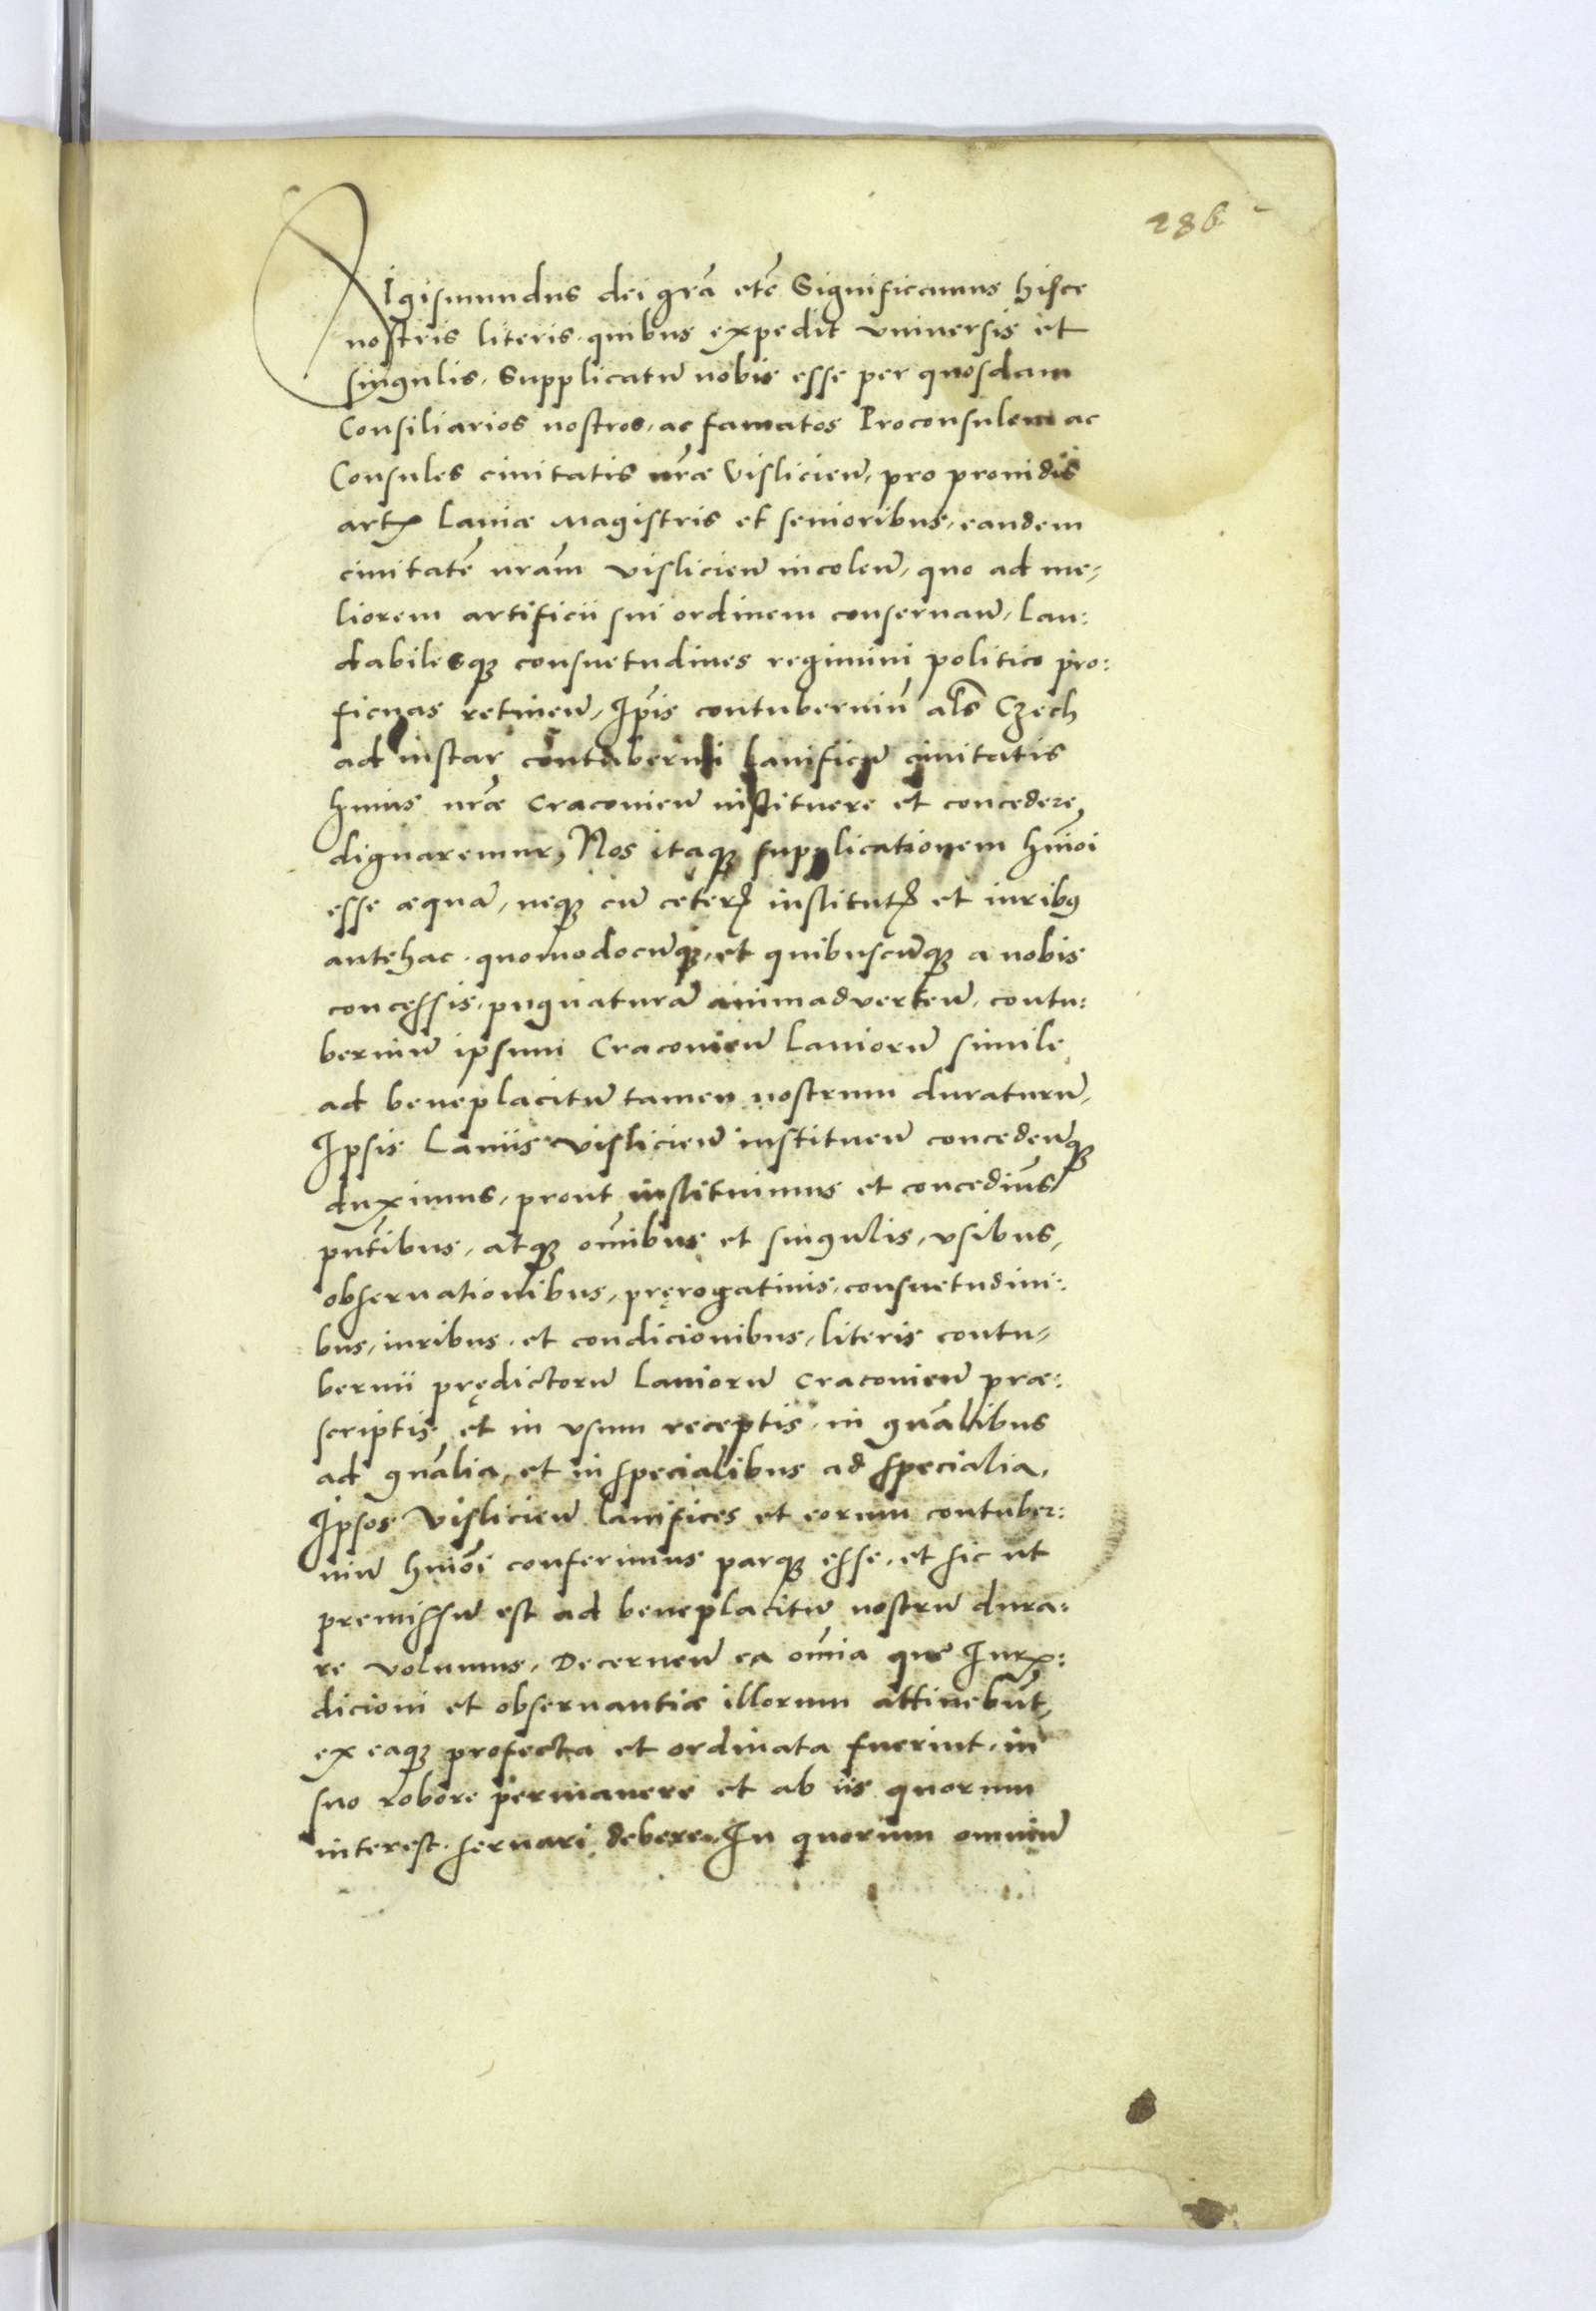 286
Sigismundus dei gr̃a etc̃ Significamus hisce
nostris literis quibus expedit vniuersis et
singulis. Supplicatũ nobis esse per quosdam
Consiliarios nostros, ac famatos Proconsulem ac
Consules ciuitatis nr̃ae Vislicieñ, pro prouidis
artꝭ Laniae Magistris et senioribus, eandem
ciuitatẽ nr̃am vislicieñ incoleñ, quo ad me-
liorem artificii sui ordinem conseruañ, Lau:
dabilesqꝫ consuetudines regimini politico pro:
ficuas retineñ, Ip̃is contuberniũ al̃s Czech
ad instar contubernii Lanificũ ciuitatis
huius nr̃ae Cracouieñ instituere et concedere
dignaremur, Nos itaqꝫ supplicationem hm̃oi
esse aequã, neqꝫ cũ ceterꝭ institutꝭ et iuribꝰ
antehac quomodocũqꝫ, et quibuscũqꝫ a nobis
concessis, pugnaturã animaduerteñ, contu:
berniũ ipsum Cracouieñ Laniorũ simile
ad beneplacitũ tamen nostrum duraturũ,
Ipsis Laniis vislicieñ instituen̄ concedeñqꝫ
duximus, prout instituimus et concedim̃us
pñtibus, atqꝫ om̃ibus et singulis, vsibus,
obseruationibus, pręrogatiuis, consuetudini:
bus, iuribus et condicionibus, literis contu-
bernii prędictorũ Laniorũ Cracouieñ prae:
scriptis et in vsum receptis, in gñalibus
ad gñalia, et in specialibus ad specialia,
Ipsos Vislicieñ lanifices et eorum contuber:
niũ hmõi conferimus parqꝫ esse, et sic ut
premissũ est ad beneplacitũ nostrũ dura:
re volumus, Decerneñ ea om̃ia que Iurꝭ:
dicioni et obseruantiae illorum attinebũt,
ex eaqꝫ profecta et ordinata fuerint, in
suo robore permanere et ab iis quorum
interest seruari debere. In quorum omniũ